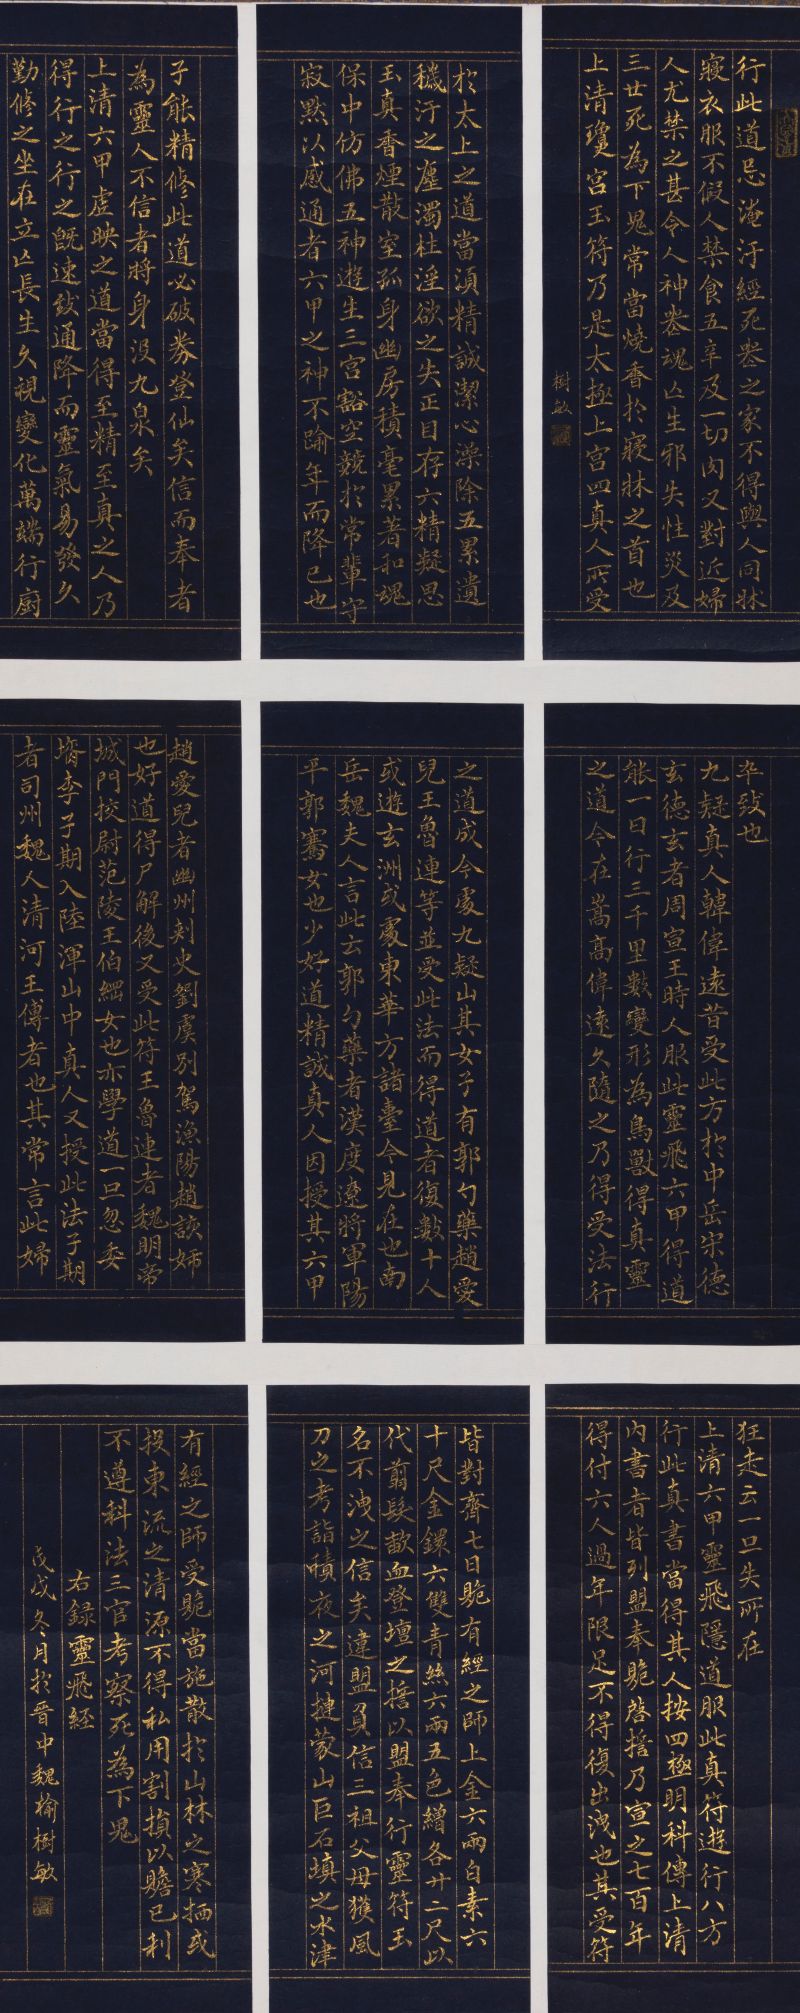 行此道忌淹汙經死喪之家不得與人同牀
寢衣服不假人禁食五辛及一切肉又對近婦
人尤禁之甚令人神喪魂亡生邪失性災及
三世死為下鬼常當燒香於寢牀之首也
上清瓊宮玉符乃是太極上宮四真人所受
樹敏
於太上之道當須精誠潔心澡除五累遺
穢汙之塵濁杜淫欲之失正目存六精凝思
玉真香煙散室孤身幽房積毫累著和魂
保中仿佛五神遊生三宮豁空競於常輩守
寂默以感通者六甲之神不踰年而降已也
子能精修此道必破券登仙矣信而奉者
為靈人不信者將身沒九泉矣
上清六甲虛映之道當得至精至真之人乃
得行之行之既速致通降而靈氣易發久
勤修之坐在立亡長生久視變化萬端行廚
卒致也
九疑真人韓偉遠昔受此方於中岳宋德
玄德玄者周宣王時人服此靈飛六甲得道
能一日行三千里數變形為鳥獸得真靈
之道今在嵩高偉遠久隨之乃得受法行
之道成今處九疑山其女子有郭勺藥趙愛
兒王魯連等並受此法而得道者復數十人
或遊玄洲或處東華方諸臺今見在也南
岳魏夫人言此云郭勺藥者漢度遼將軍陽
平郭騫女也少好道精誠真人因授其六甲
趙愛兒者幽州刺史劉虞別駕漁陽趙該姊
也好道得尸解後又受此符王魯連者魏明帝
城門挍尉范陵王伯綱女也亦學道一旦忽委
壻李子期入陸渾山中真人又授此法子期
者司州魏人清河王傳者也其常言此婦
狂走云一旦失所在
上清六甲靈飛隱道服此真符遊行八方
行此真書當得其人按四極明科傳上清
內書者皆列盟奉貺啓擔乃宣之七百年
得付六人過年限足不得復出洩也其受符
皆對齊七日貺有經之師上金六兩白素六
十尺金鐶六雙青絲六兩五色繒各廿二尺以
代翦髮歃血登壇之擔以盟奉行靈符玉
名不洩之信矣違盟負信三祖父母獲風
刀之考詣積夜之河揵蒙山巨石填之水津
有經之師受貺當施散於山林之寒栖或
投東流之清源不得私用割損以贍已利
不遵科法三官考察死為下鬼
右錄靈飛經
戊戌冬月於晉中魏榆樹敏